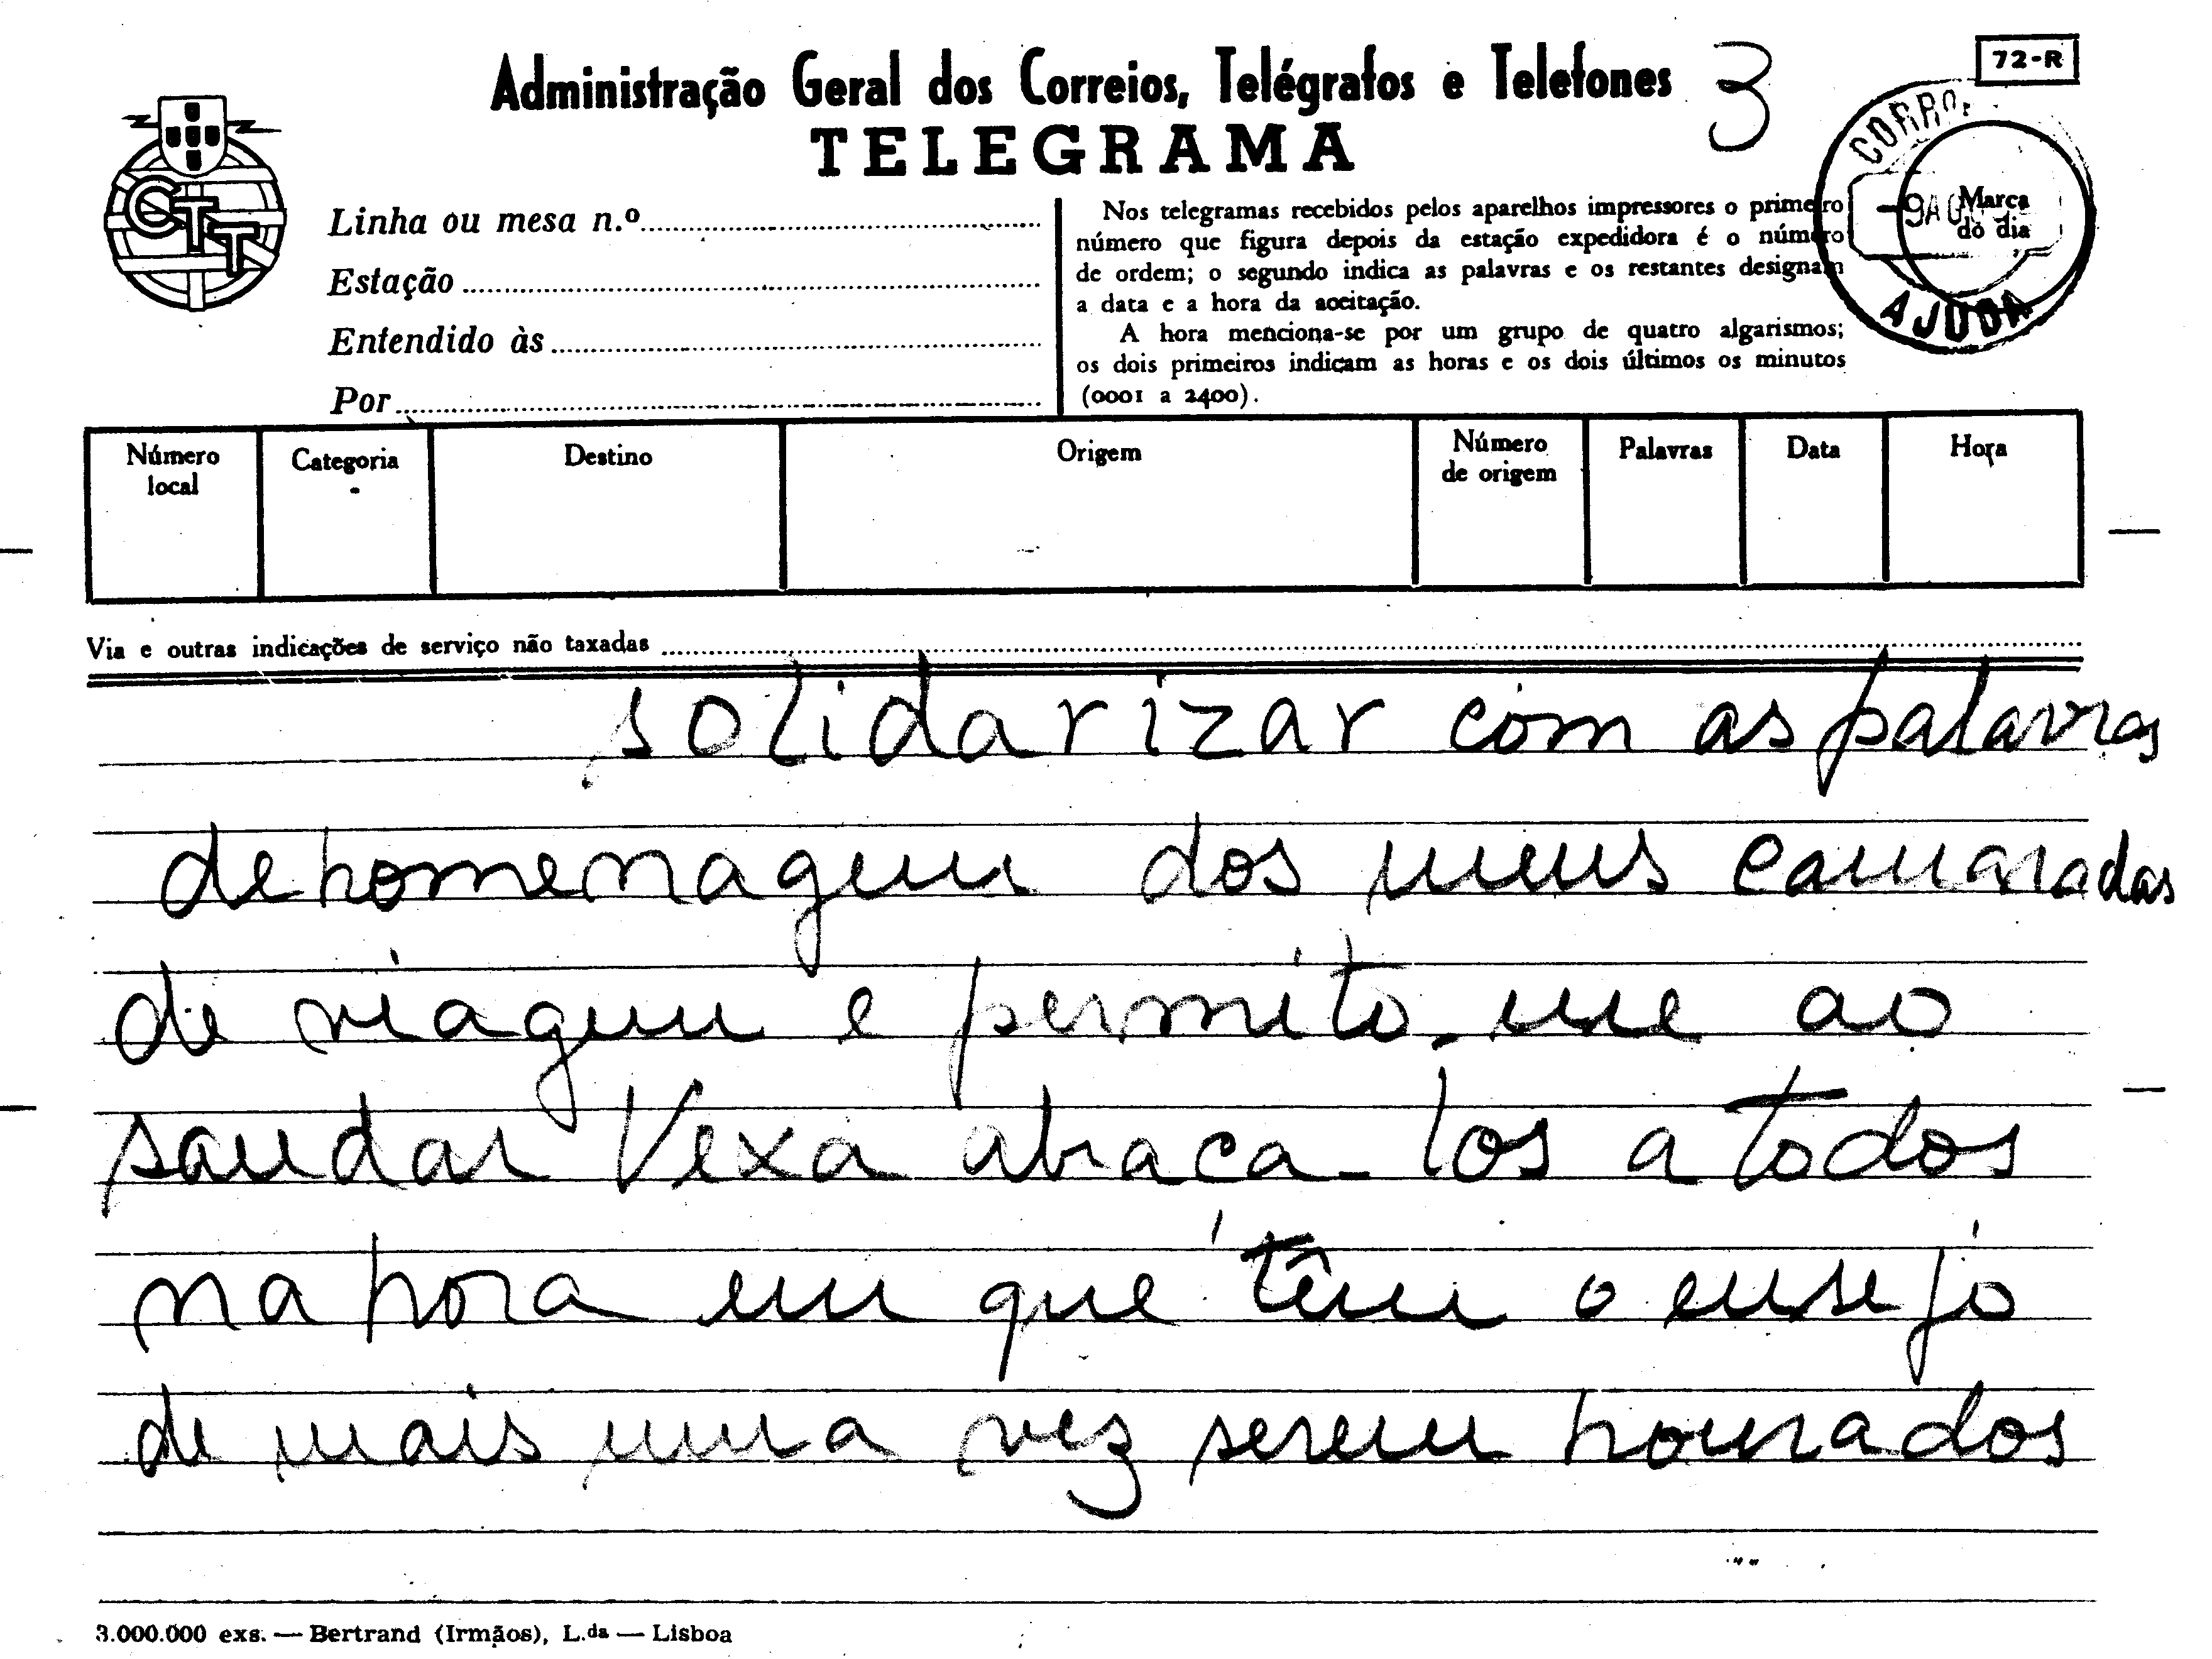 Administração Geral dos Correios, Telégrafos e Telefones 3
72-R
TELEGRAMA
CTT
Linha ou mesa n.º
Estação
Entendido às
Por
Nos telegramas recebidos pelos aparelhos impressores o primeiro
número que figura depois da estação expedidora é o número
de ordem; o segundo indica as palavras e os restantes designam
a data e a hora da aceitação.
A hora menciona-se por um grupo de quatro algarismos;
os dois primeiros indicam as horas e os dois últimos os minutos
(0001 a 2400).
Marca
do dia
AJUDA
Número
local
Categoria
Destino
Origem
Número
de origem
Palavras
Data
Hora
Via e outras indicações de serviço não taxadas
solidarizar com as palavras
de homenagem dos meus camaradas
de viagem e permito-me ao
saudar Vexa abraca-los a todos
na hora em que têm o ensejo
de mais uma vez serem honrados
3.000.000 exs. — Bertrand (Irmãos), L.da — Lisboa